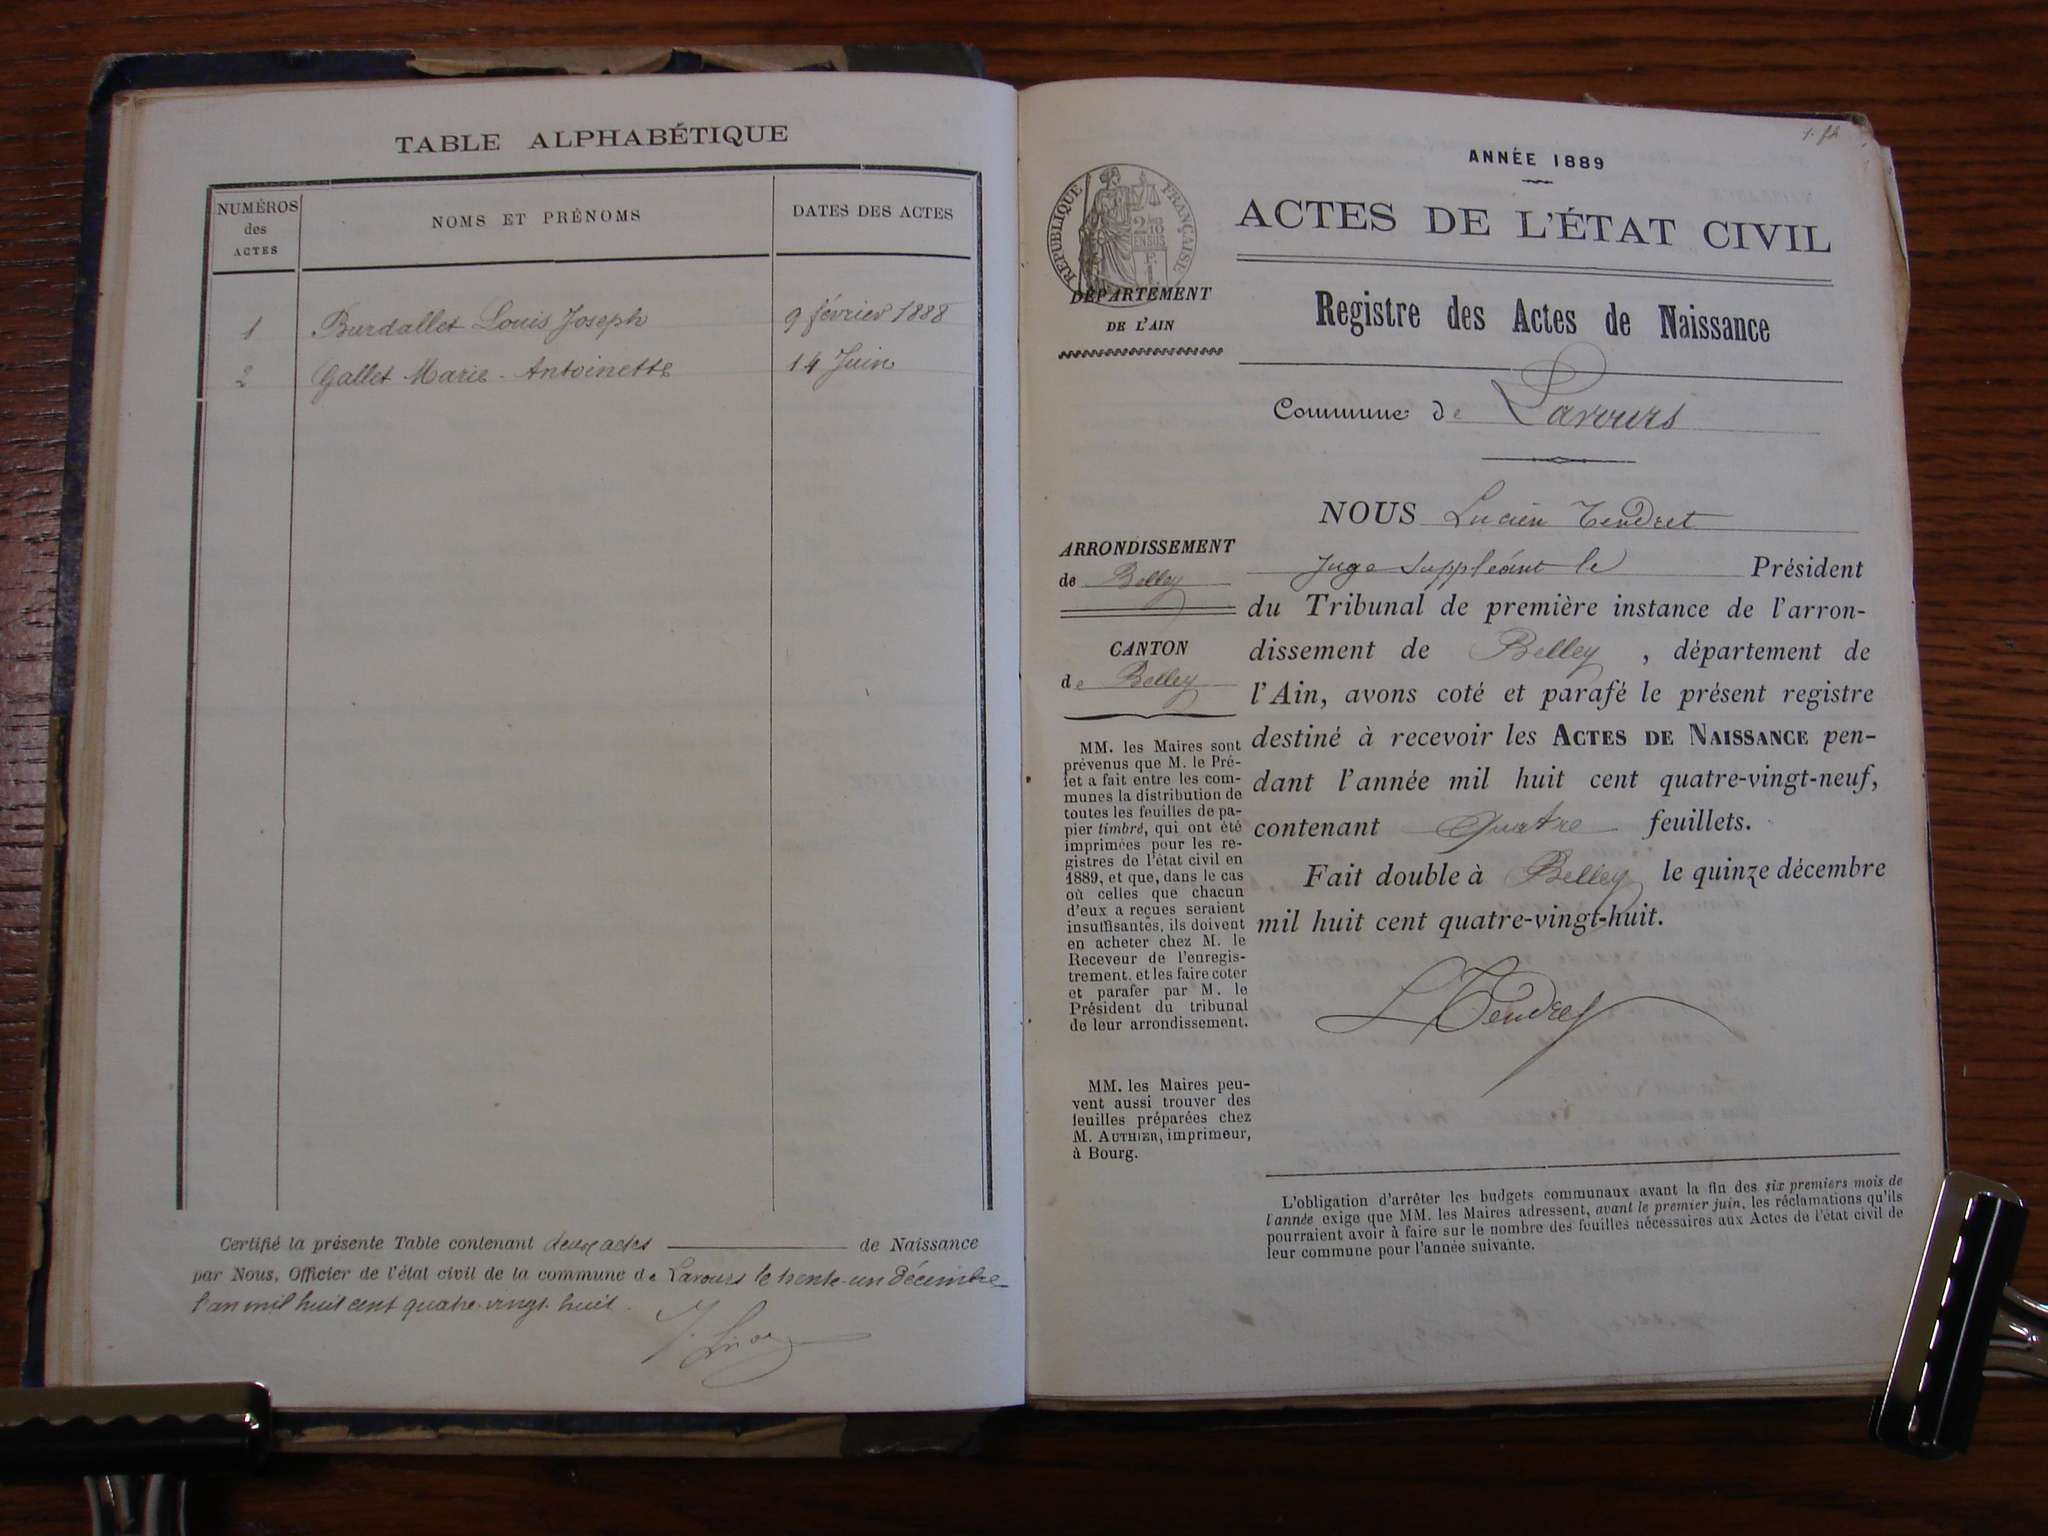 TABLE ALPHABÉTIQUE
NUMÉROS
des
ACTES
NOMS ET PRÉNOMS
DATES DES ACTES
1 Burdallet Louis Joseph 9 février 1888
2 Gallet Marie-Antoinette 14 Juin
Certifié la présente Table contenant deux actes de Naissance
par Nous, Officier de l'état civil de la commune de Lavours le trente-un décembre
l'an mil huit cent quatre-vingt huit.
ANNÉE 1889
RÉPUBLIQUE FRANÇAISE
ACTES DE L'ÉTAT CIVIL
DÉPARTEMENT
DE L'AIN
Registre des Actes de Naissance
Commune de Lavours
NOUS Lucien Tendret
Juge Suppléant le Président
du Tribunal de première instance de l'arron-
dissement de Belley, département de
l'Ain, avons coté et parafé le présent registre
destiné à recevoir les ACTES DE NAISSANCE pen-
dant l'année mil huit cent quatre-vingt-neuf,
contenant Quatre feuillets.
Fait double à Belley le quinze décembre
mil huit cent quatre-vingt-huit.
L Tendret
ARRONDISSEMENT
de Belley
CANTON
de Belley
MM. les Maires sont
prévenus que M. le Pré-
fet a fait entre les com-
munes la distribution de
toutes les feuilles de pa-
pier timbré, qui ont été
imprimées pour les re-
gistres de l'état civil en
1889, et que, dans le cas
où celles que chacun
d'eux a reçues seraient
insuffisantes, ils doivent
en acheter chez M. le
Receveur de l'enregis-
trement, et les faire coter
et parafer par M. le
Président du tribunal
de leur arrondissement.
MM. les Maires peu-
vent aussi trouver des
feuilles préparées chez
M. AUTHIER, imprimeur,
à Bourg.
L'obligation d'arrêter les budgets communaux avant la fin des six premiers mois de
l'année exige que MM. les Maires adressent, avant le premier juin, les réclamations qu'ils
pourraient avoir à faire sur le nombre des feuilles nécessaires aux Actes de l'état civil de
leur commune pour l'année suivante.